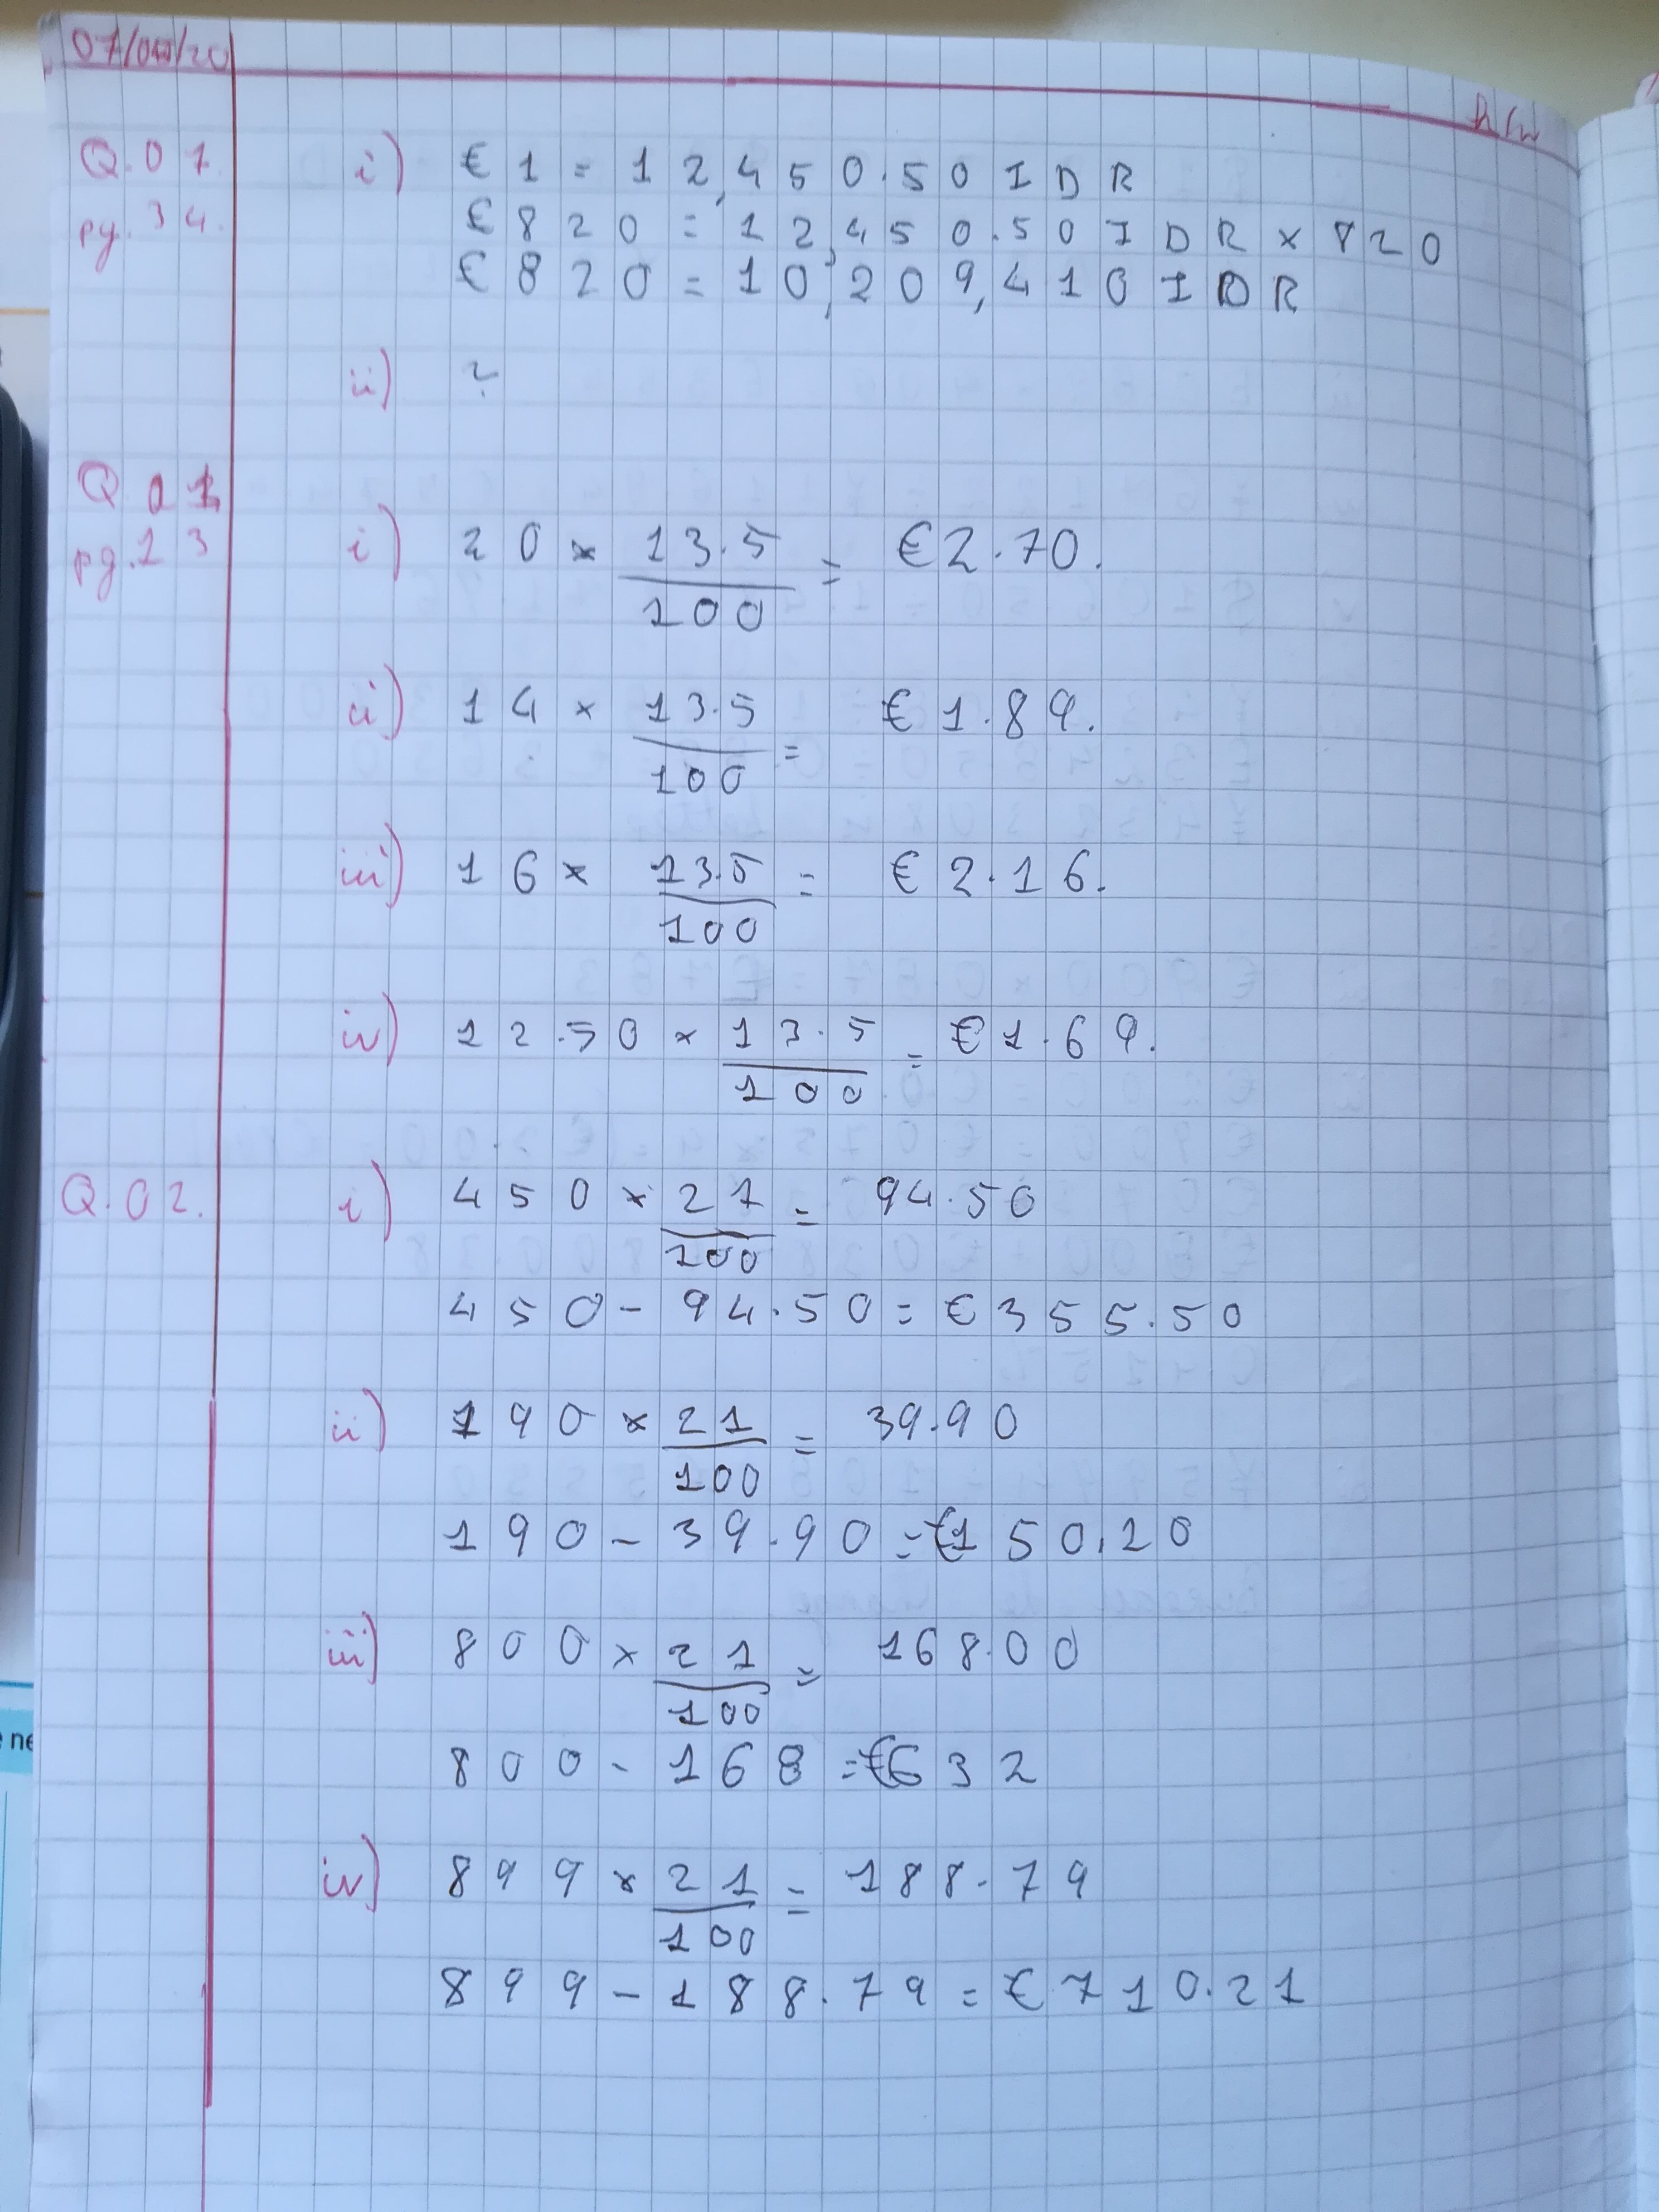 07/04/20
h/w
Q.07 i) €1 = 12,450.50 IDR
pg.34. €820 = 12,450.50 IDR × 820
€820 = 10,209,410 IDR
ii) ?
Q.01
pg.13 i) 20 × 13.5/100 = €2.70.
ii) 14 × 13.5/100 = €1.89.
iii) 16 × 13.5/100 = €2.16.
iv) 12.50 × 13.5/100 = €1.69.
Q.02. i) 450 × 21/100 = 94.50
450 - 94.50 = €355.50
ii) 190 × 21/100 = 39.90
190 - 39.90 = €150.20
iii) 800 × 21/100 = 168.00
800 - 168 = €632
iv) 899 × 21/100 = 188.79
899 - 188.79 = €710.21